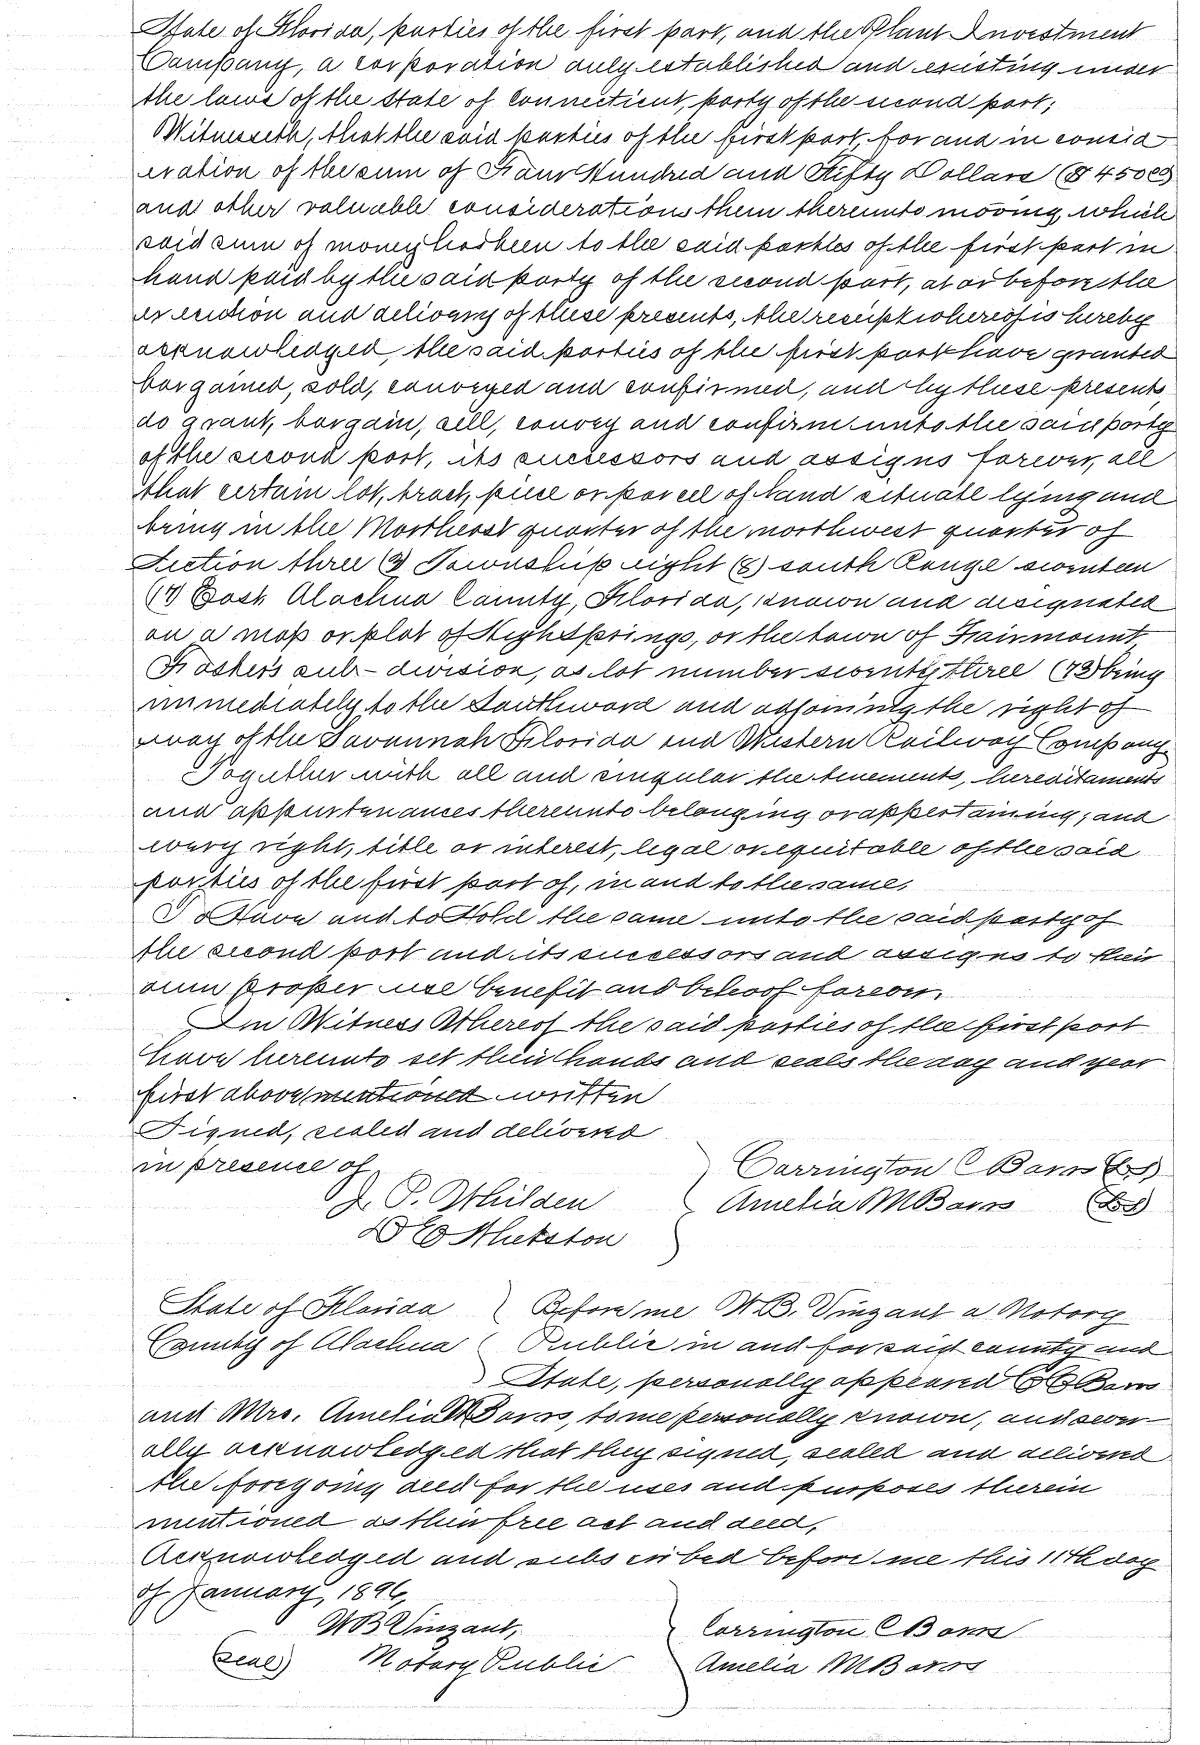 State of Florida, parties of the first part, and the Plant Investment
Company, a corporation duly established and existing under
the laws of the State of Connecticut, party of the second part;
Witnesseth, that the said parties of the first part, for and in consid-
eration of the sum of Four Hundred and Fifty Dollars ($450.00)
and other valuable considerations them thereunto moving, which
said sum of money has been to the said parties of the first part in
hand paid by the said party of the second part, at or before the
execution and delivery of these presents, the receipt whereof is hereby
acknowledged, the said parties of the first part have granted
bargained, sold, conveyed and confirmed, and by these presents
do grant, bargain, sell, convey and confirm unto the said party
of the second part, its successors and assigns forever, all
that certain lot, tract, piece or parcel of land situate lying and
being in the Northeast quarter of the northwest quarter of
Section three (3) Township eight (8) south Range seventeen
(17) East Alachua County, Florida, known and designated
on a map or plat of High Springs, or the town of Fairmount,
sub-division, as lot number seventy three (73) being
immediately to the Southward and adjoining the right of
way of the Savannah Florida and Western Railway Company
Together with all and singular the tenements, hereditaments
and appurtenances thereunto belonging or appertaining; and
every right, title or interest, legal or equitable of the said
parties of the first part of, in and to the same.
To Have and to Hold the same unto the said party of
the second part and its successors and assigns to their
own proper use benefit and behoof forever.
In Witness Whereof the said parties of the first part
have hereunto set their hands and seals the day and year
first above mentioned written
Signed, sealed and delivered
in presence of
J. P. Whilden
D E
Carrington C Barrs (LS)
Amelia M Barrs (LS)
State of Florida
County of Alachua
Before me W. B. Vinzant a Notary
Public in and for said county and
State, personally appeared C C Barrs
and Mrs. Amelia M Barrs, to me personally known, and sever-
ally acknowledged that they signed, sealed and delivered
the foregoing deed for the uses and purposes therein
mentioned as their free act and deed,
Acknowledged and subscribed before me this 11th day
of January, 1896,
W B Vinzant,
(seal) Notary Public
Carrington C Barrs
Amelia M Barrs